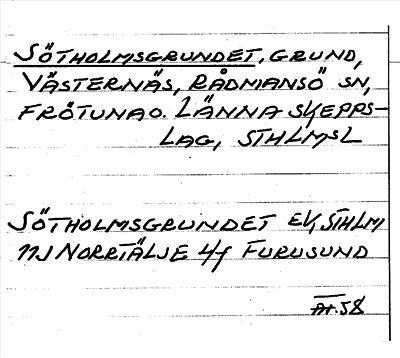 SÖTHOLMSGRUNDET, GRUND,
VÄSTERNÄS, RÅDMANSÖ SN,
FRÖTUNA O. LÄNNA SKEPPS-
LAG, STHLMSL
SÖTHOLMSGRUNDET EV, STHLM
NJ NORRTÄLJE 4f FURUSUND
At. 58